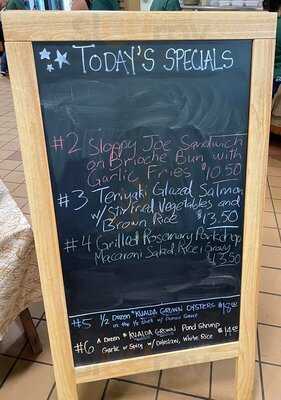 TODAY'S SPECIALS
#2 Sloppy Joe Sandwich
on Brioche Bun with
Garlic Fries $10.50
#3 Teriyaki Glazed Salmon
w/ Stirfried Vegetables and
Brown Rice $13.50
#4 Grilled Rosemary Porkchop
Macaroni Salad, Rice & Gravy
13.50
#5 1/2 Dozen *KUALOA GROWN OYSTERS $18.00
in the 1/2 shell w/ Ponzu Sauce
#6 A Dozen *KUALOA GROWN Pond Shrimp
Garlic or Spicy w/ Coleslaw, White Rice